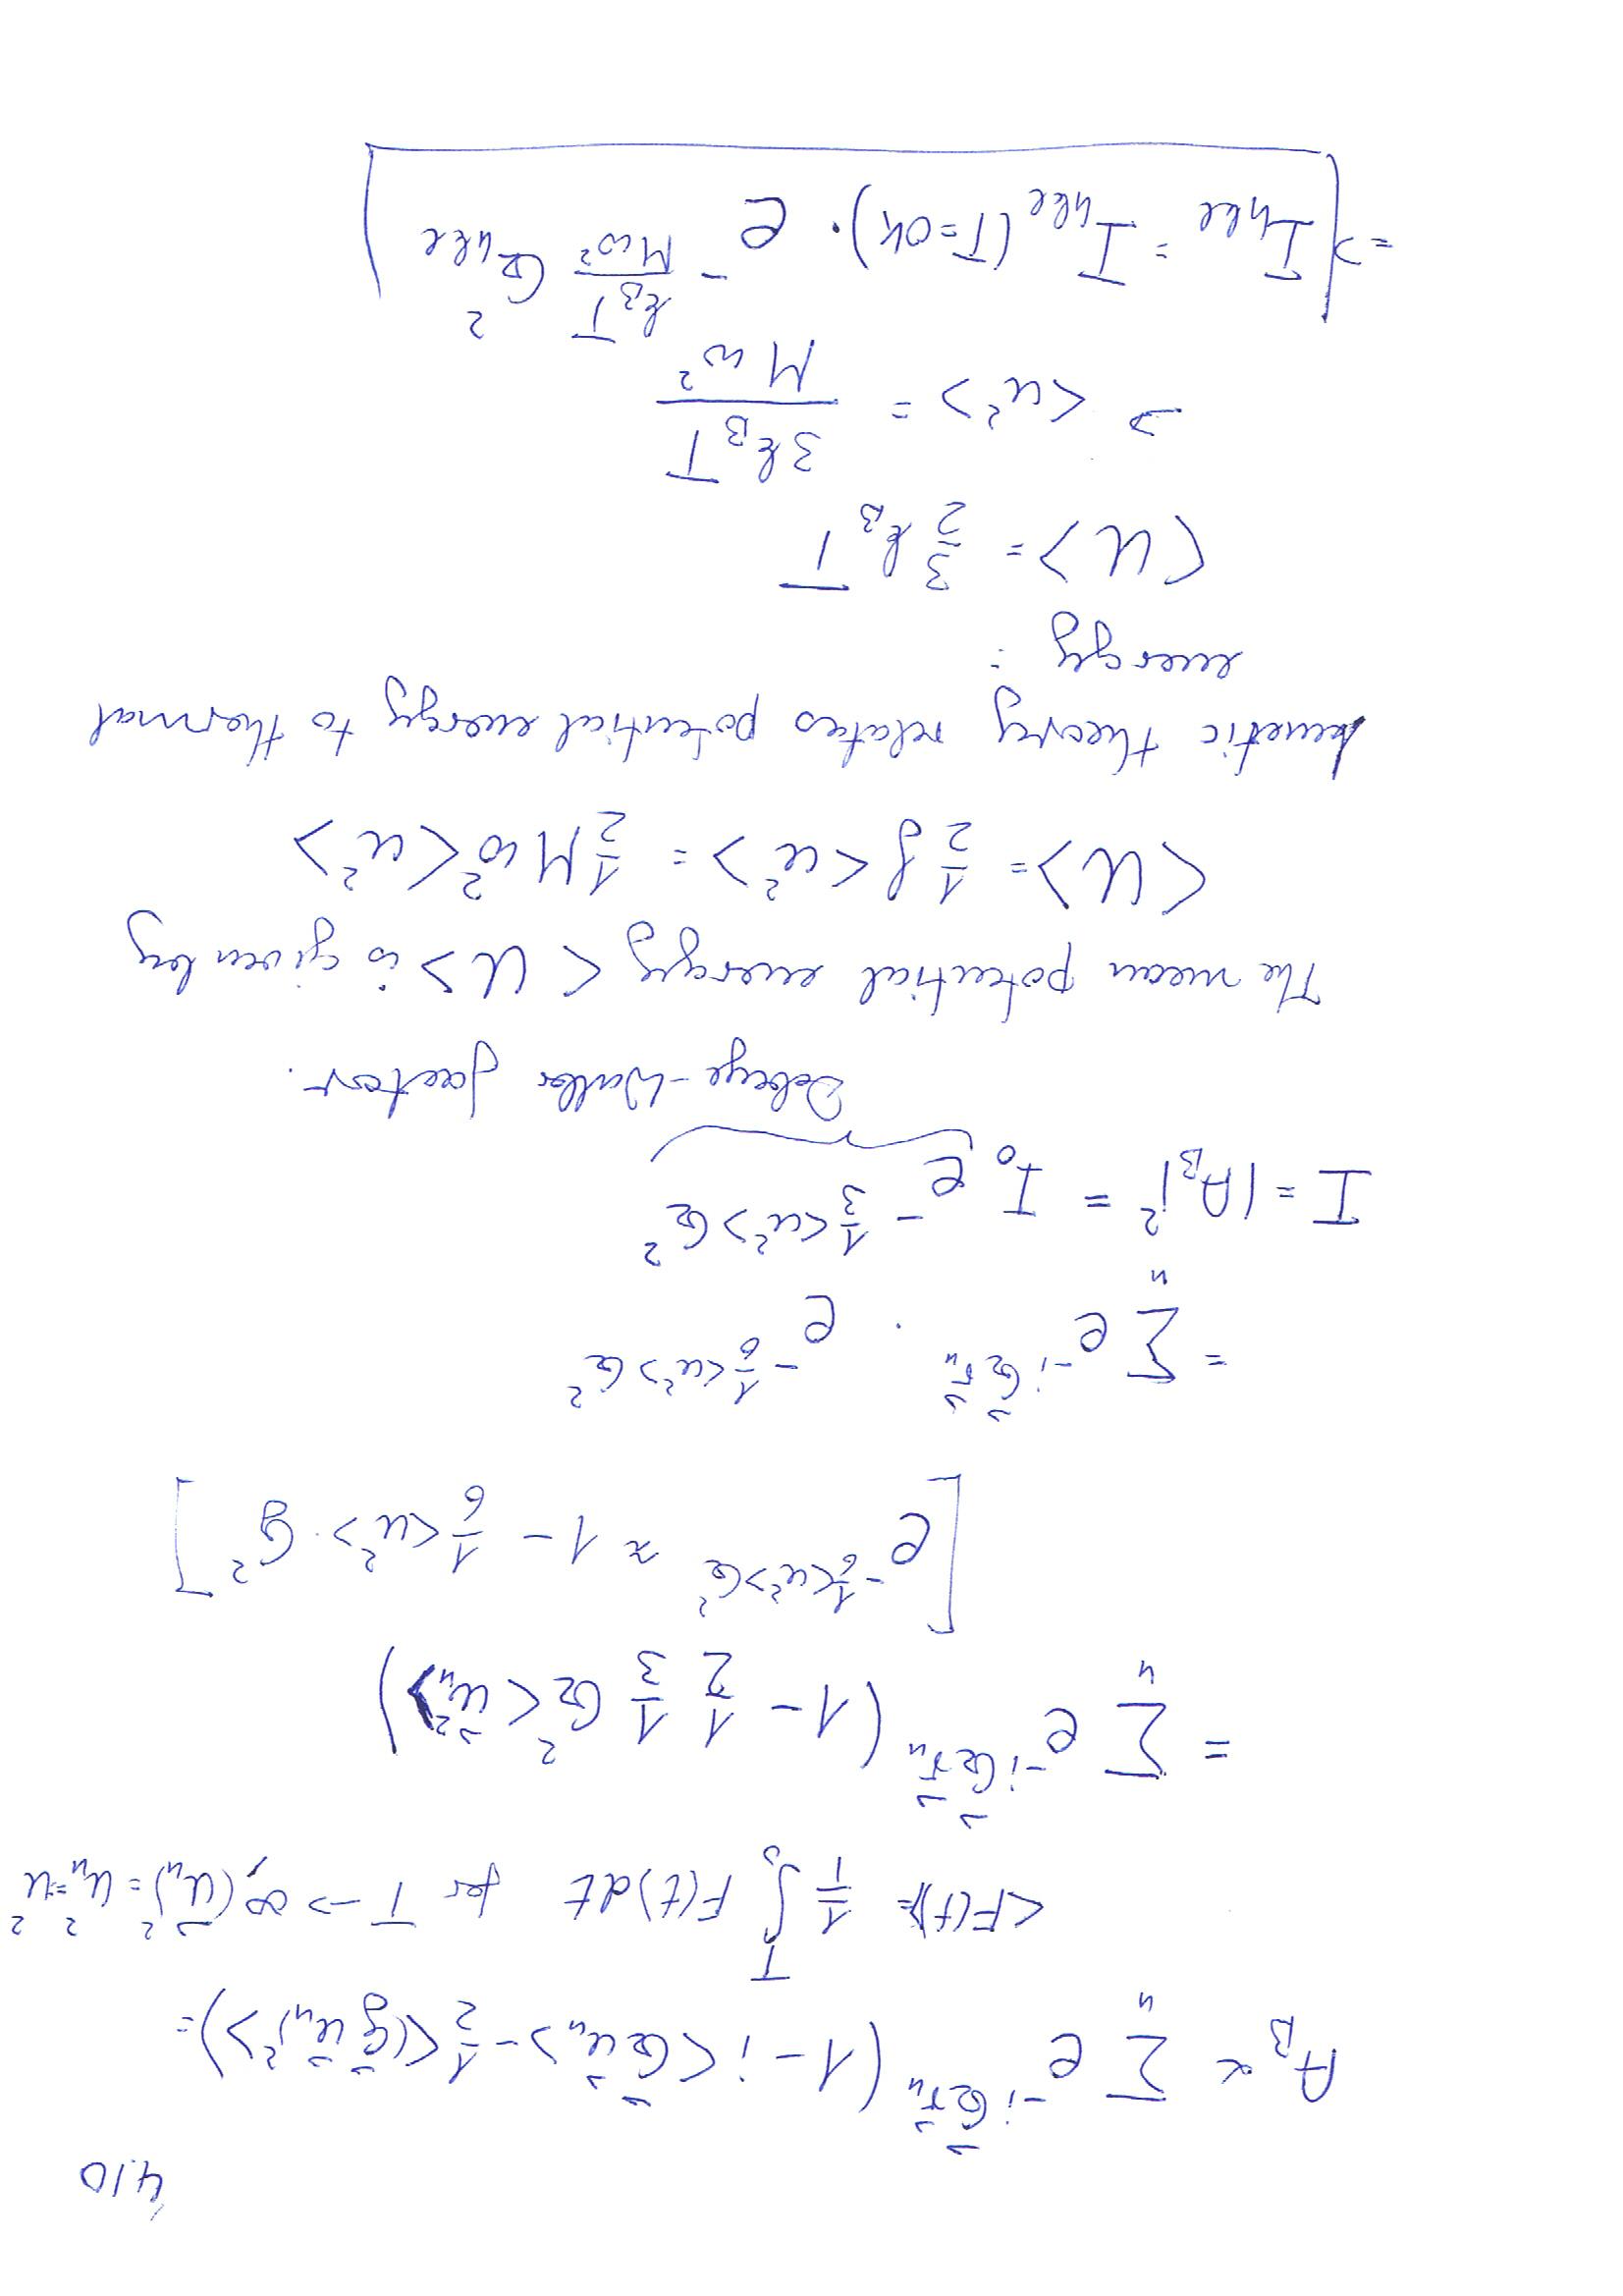 4.10
A_B ∝ Σ_n e^{-i G⃗ r⃗_n} (1 - i <G⃗ u⃗_n> - 1/2 <(G⃗ u⃗_n)²>) =
<F(t)> = 1/T ∫_0^T F(t) dt for T -> ∞, (u⃗_n)² = u_n² = u²
= Σ_n e^{-i G⃗ r⃗_n} (1 - 1/2 1/3 G² <u⃗_n²>)
[ e^{-1/6 <u²> G²} ≈ 1 - 1/6 <u²> · G² ]
= Σ_n e^{-i G⃗ r⃗_n} · e^{-1/6 <u²> G²}
I = |A_B|² = I_0 e^{-1/3 <u²> G²}
Debye-Waller factor.
The mean potential energy <U> is given by
<U> = 1/2 f <u²> = 1/2 M ω² <u²>
kinetic theory relates potential energy to thermal
energy :
<U> = 3/2 k_B T
=> <u²> = 3 k_B T / M ω²
=> I_hkl = I_hkl (T=0K) · e^{- k_B T / M ω² G_hkl²}